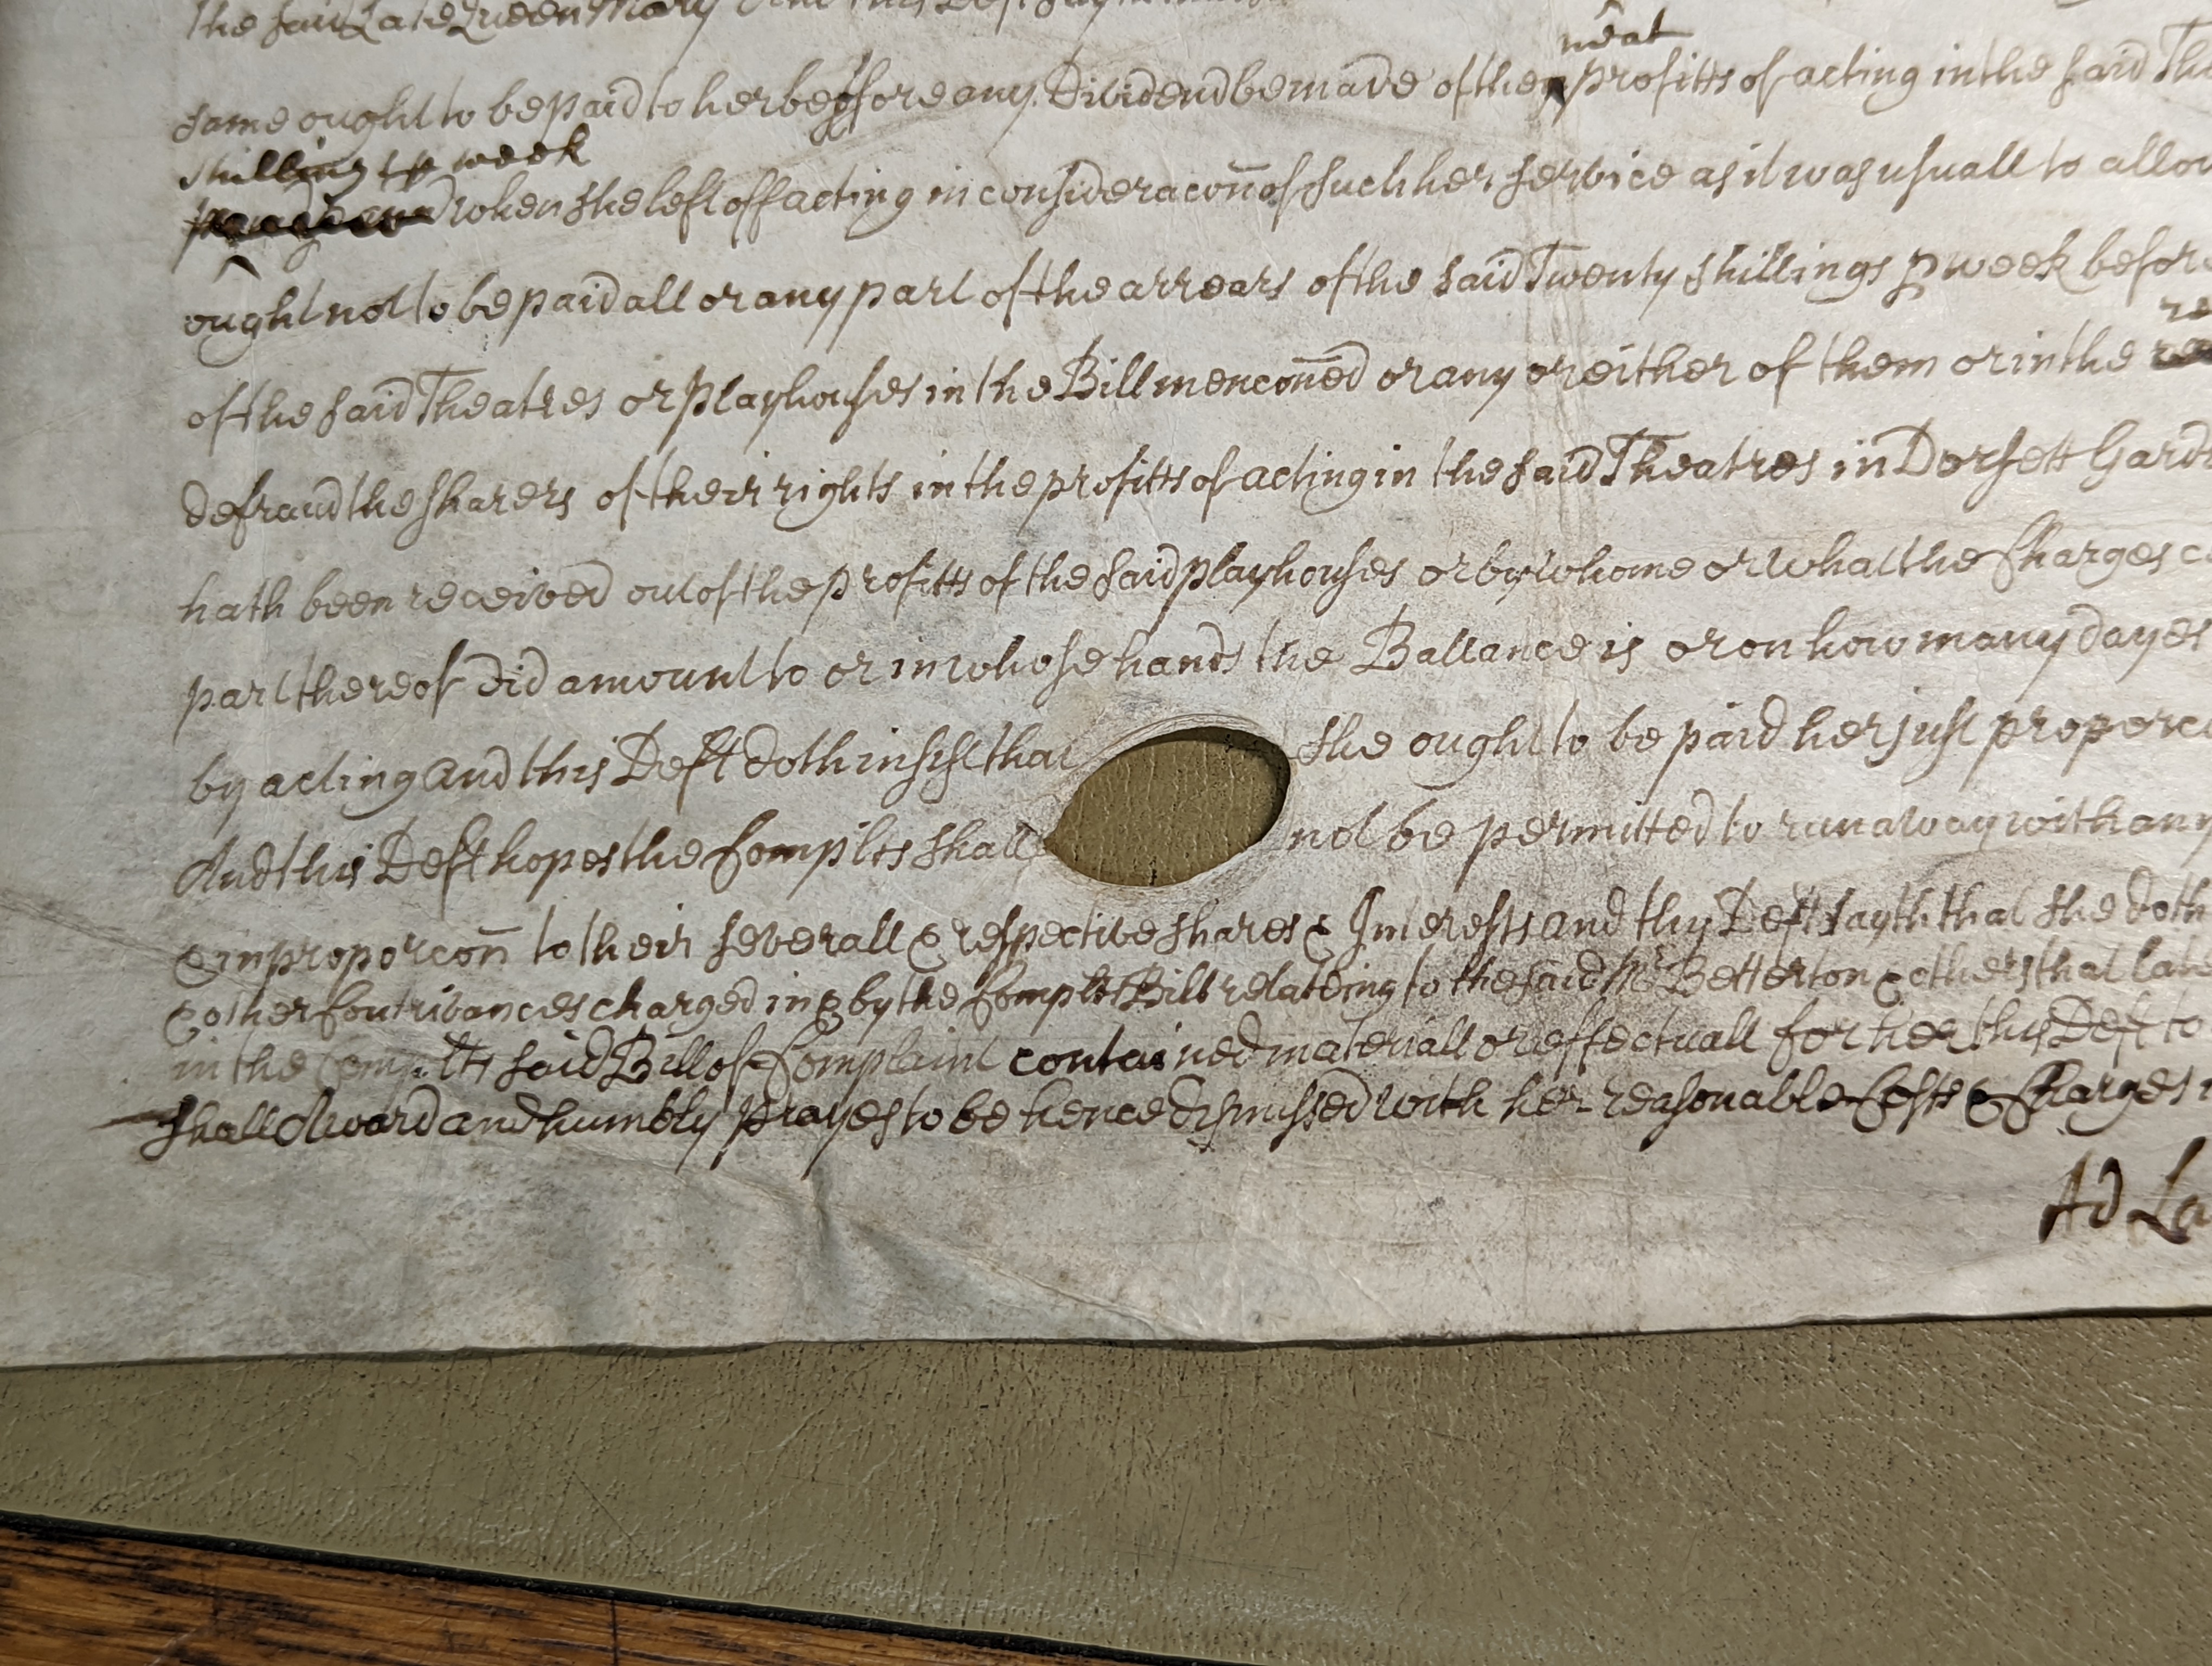 the said Late Queen Mary And this Deft
neat
same ought to be paid to her before any Dividend be made of the profitts of acting in the said Th
shilling p week
when she left off acting in consideracon̄ of such her service as it was usuall to allow
ought not to be paid all or any part of the arrears of the said Twenty shillings p week before
of the said Theatres or playhouses in the Bill mencon̄ed or any or either of them or in the
defraud the sharers of their rights in the profitts of acting in the said Theatres in Dorsett Gard
hath been received out of the profitts of the said playhouses or by whome or what the Charges
part thereof did amount to or in whose hands the Ballance is or on how many dayes
by acting and this Deft doth insist that she ought to be paid her just proporc
And this Deft hopes the Complts shall not be permitted to run away with any
& in proporcon̄ to their severall & respective shares & Interests and this Deft sayth that she doth
& other Contrivances charged in & by the Complts Bill relateing to the said Mr Betterton & others that late
in the Complts said Bill of Complaint contained materiall or effectuall for her this Deft to
shall Award and humbly prayes to be hence dismissed with her reasonable Costs & Charges
Ad La